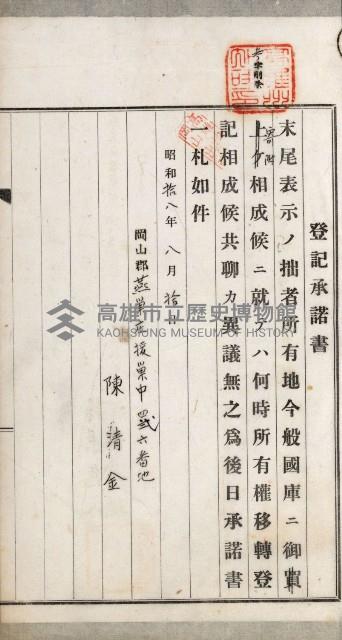 登記承諾書
末尾表示ノ拙者所有地今般國庫ニ御買
寄附
上ケ相成候ニ就テハ何時所有權移轉登
記相成候共聊カ異議無之爲後日承諾書
一札如件
昭和拾八年八月拾日
岡山郡燕巢庄援巢中四貳六番地
陳清金
高雄市立歷史博物館
KAOHSIUNG MUSEUM OF HISTORY